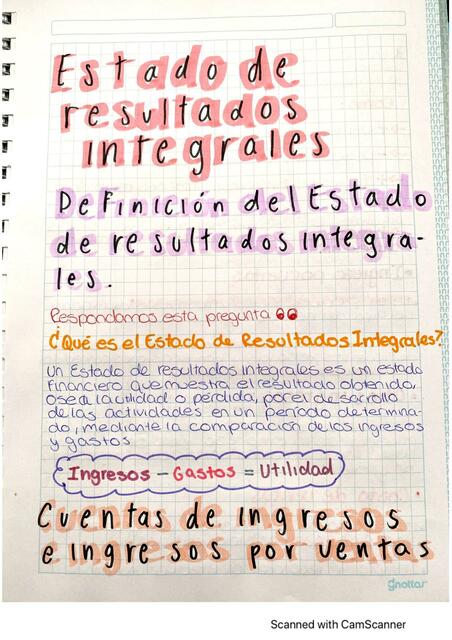 Estado de
resultados
integrales
Definición del Estado
de resultados integra-
les.
Respondamos esta pregunta
¿Qué es el Estado de Resultados Integrales?
Un Estado de resultados integrales es un estado
financiero que muestra el resultado obtenido,
osea la utilidad o pérdida, por el desarrollo
de las actividades en un período determina-
do, mediante la comparación de los ingresos
y gastos
Ingresos - Gastos = Utilidad
Cuentas de ingresos
e ingresos por ventas
gnottas
Scanned with CamScanner